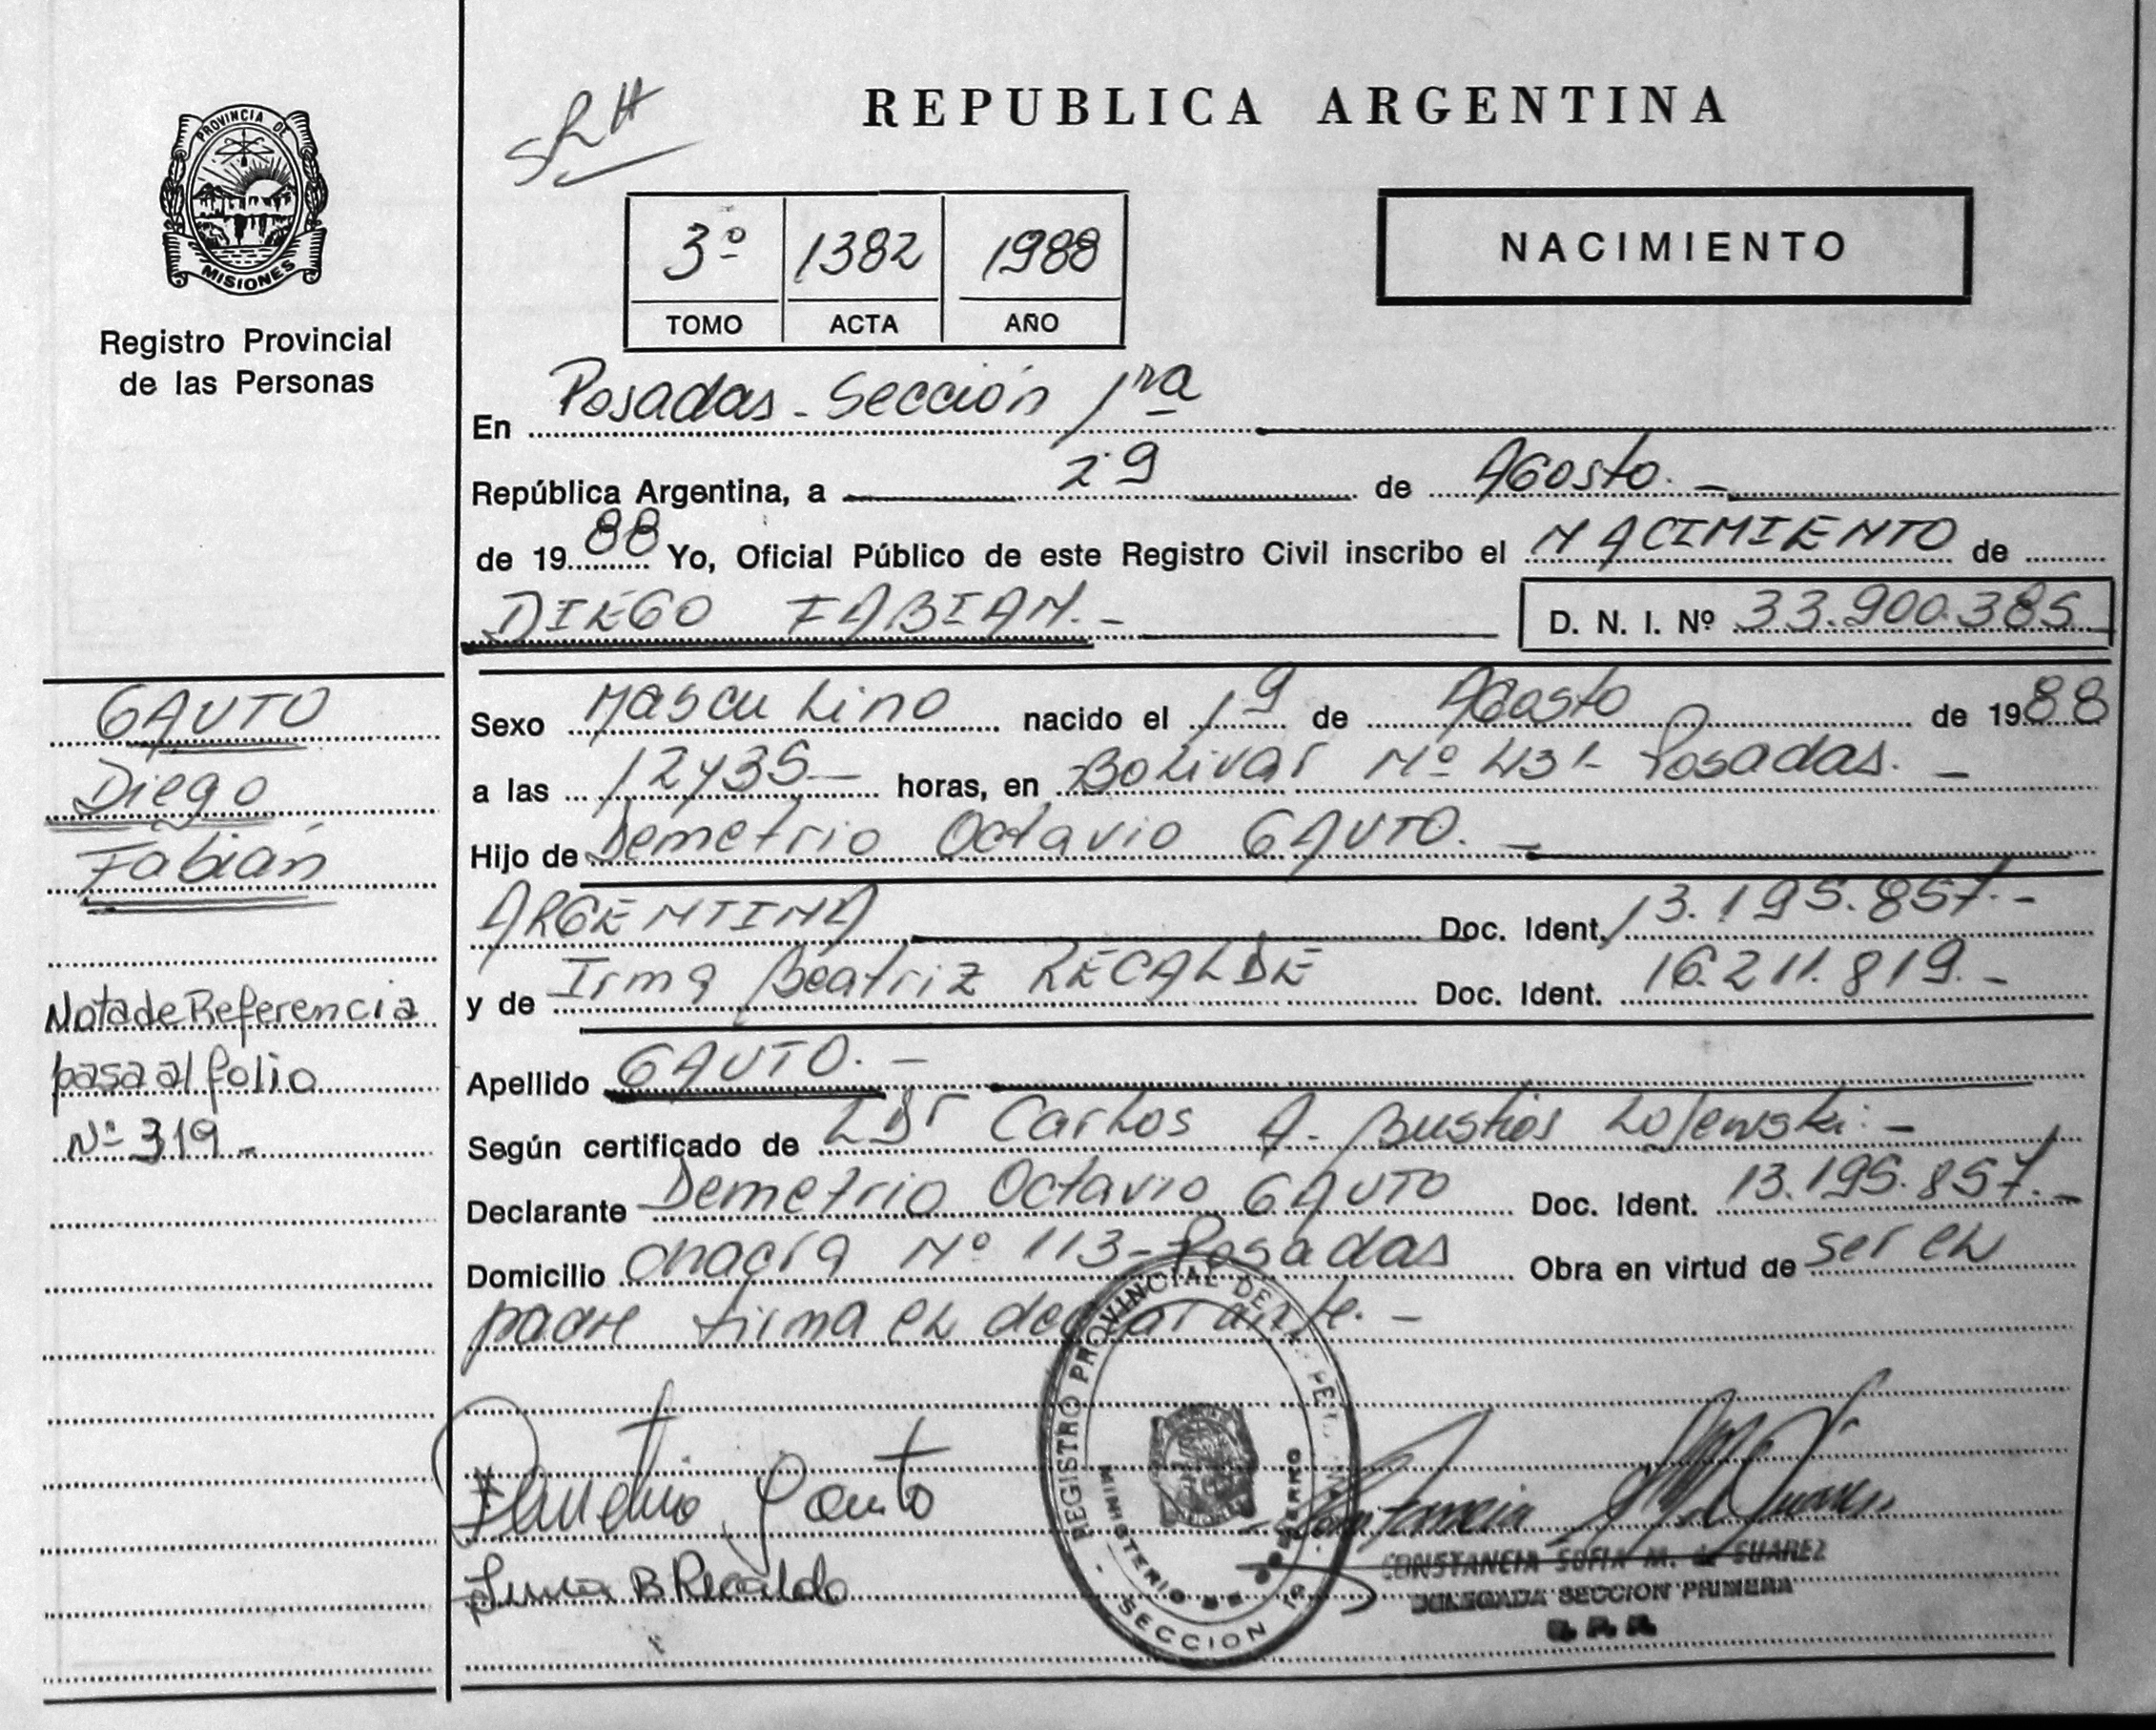 PROVINCIA DE
MISIONES
Registro Provincial
de las Personas
SRH
REPUBLICA ARGENTINA
3º 1382 1988
TOMO ACTA AÑO
NACIMIENTO
En Posadas - Sección 1ra
República Argentina, a 29 de Agosto. -
de 1988 Yo, Oficial Público de este Registro Civil inscribo el NACIMIENTO de
DIEGO FABIAN. - D. N. I. Nº 33.900.385
GAUTO
Diego
Fabián
Nota de Referencia
pasa al folio
Nº 319 -
Sexo Masculino nacido el 19 de Agosto de 1988
a las 12y35 - horas, en Bolivar Nº 431 - Posadas. -
Hijo de Demetrio Octavio GAUTO. -
ARGENTINA Doc. Ident. 13.195.857. -
y de Irma Beatriz RECALDE Doc. Ident. 16.211.819. -
Apellido GAUTO. -
Según certificado de Dr Carlos A. Bustos -
Declarante Demetrio Octavio GAUTO Doc. Ident. 13.195.857. -
Domicilio chacra Nº 113 - Posadas Obra en virtud de ser el
padre firma el declarante. -
REGISTRO PROVINCIAL DE
MINISTERIO DE GOBIERNO
SECCION 1ª
Demetrio Gauto
Irma B Recalde
CONSTANCIA SOFIA M. de SUAREZ
DELEGADA SECCION PRIMERA